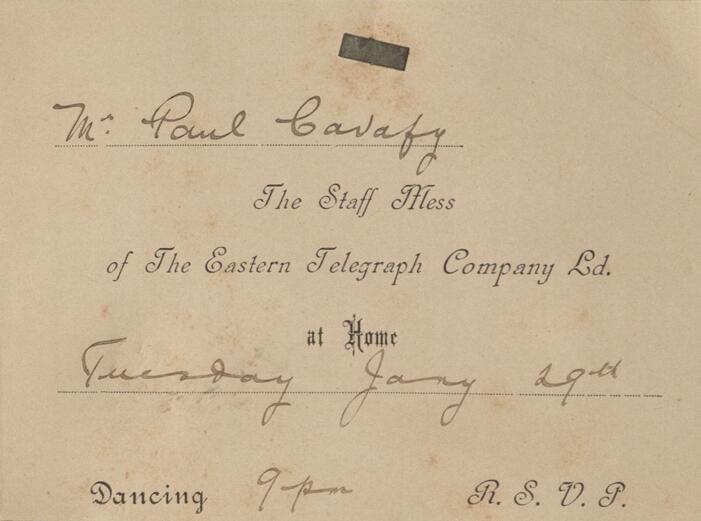 Mr. Paul Cavafy
The Staff Mess
of The Eastern Telegraph Company Ld.
at Home
Tuesday Jany 29th
Dancing 9 pm R. S. V. P.